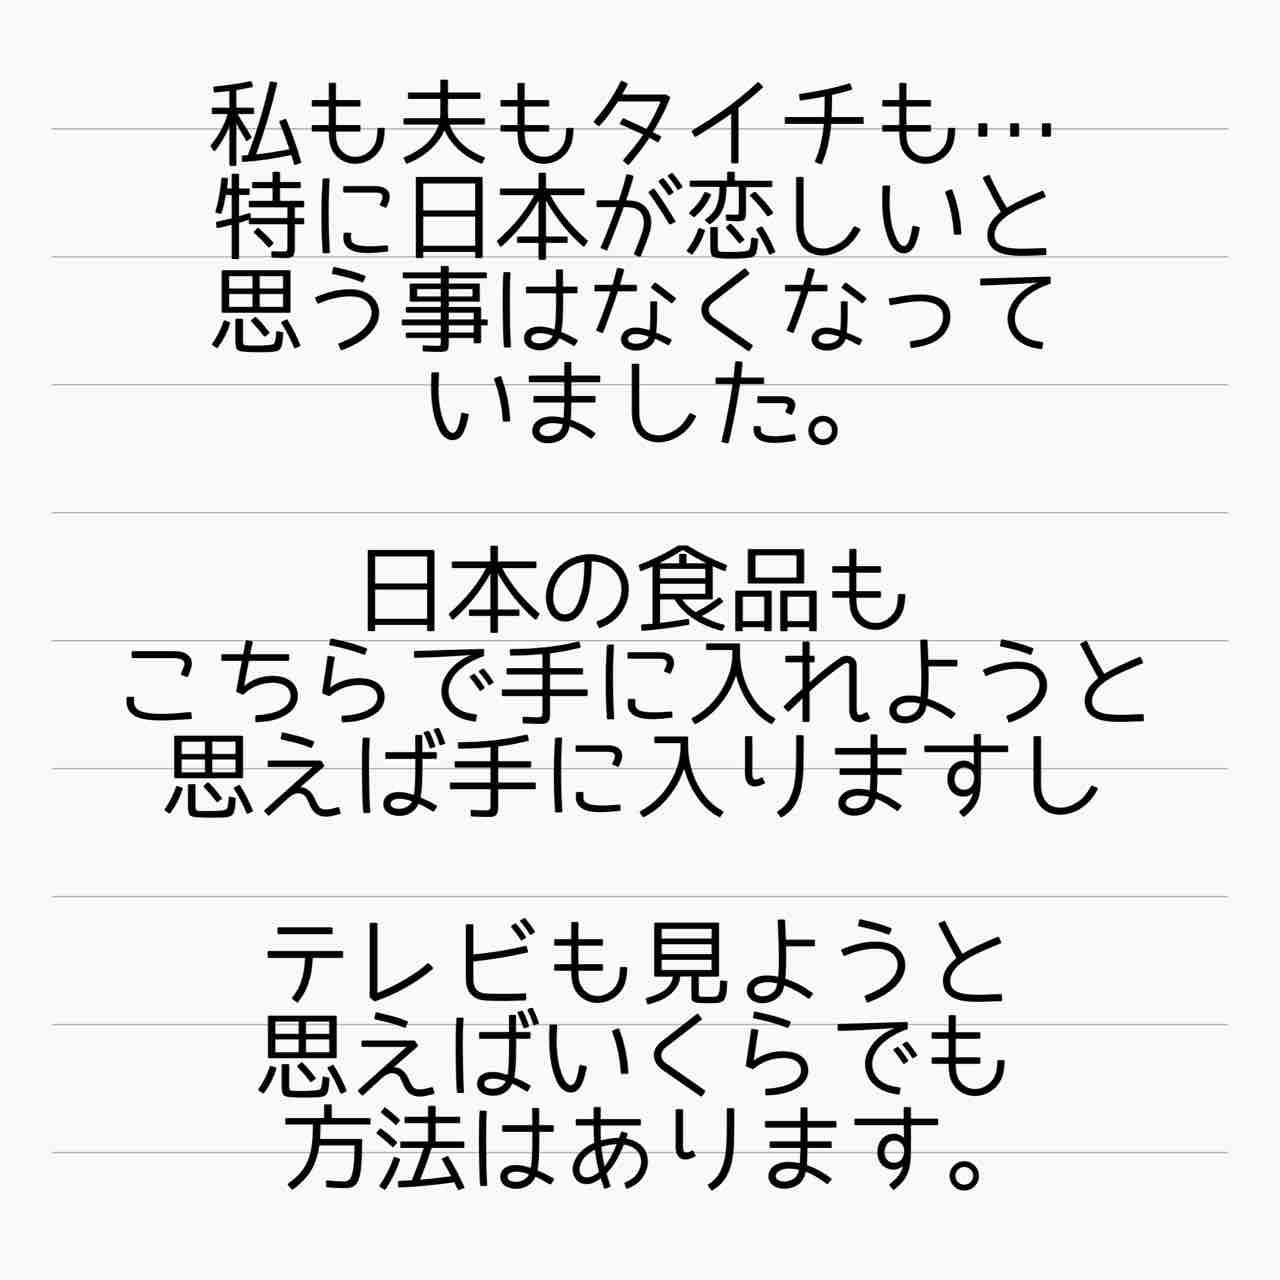 私も夫もタイチも…
特に日本が恋しいと
思う事はなくなって
いました。
日本の食品も
こちらで手に入れようと
思えば手に入りますし
テレビも見ようと
思えばいくらでも
方法はあります。